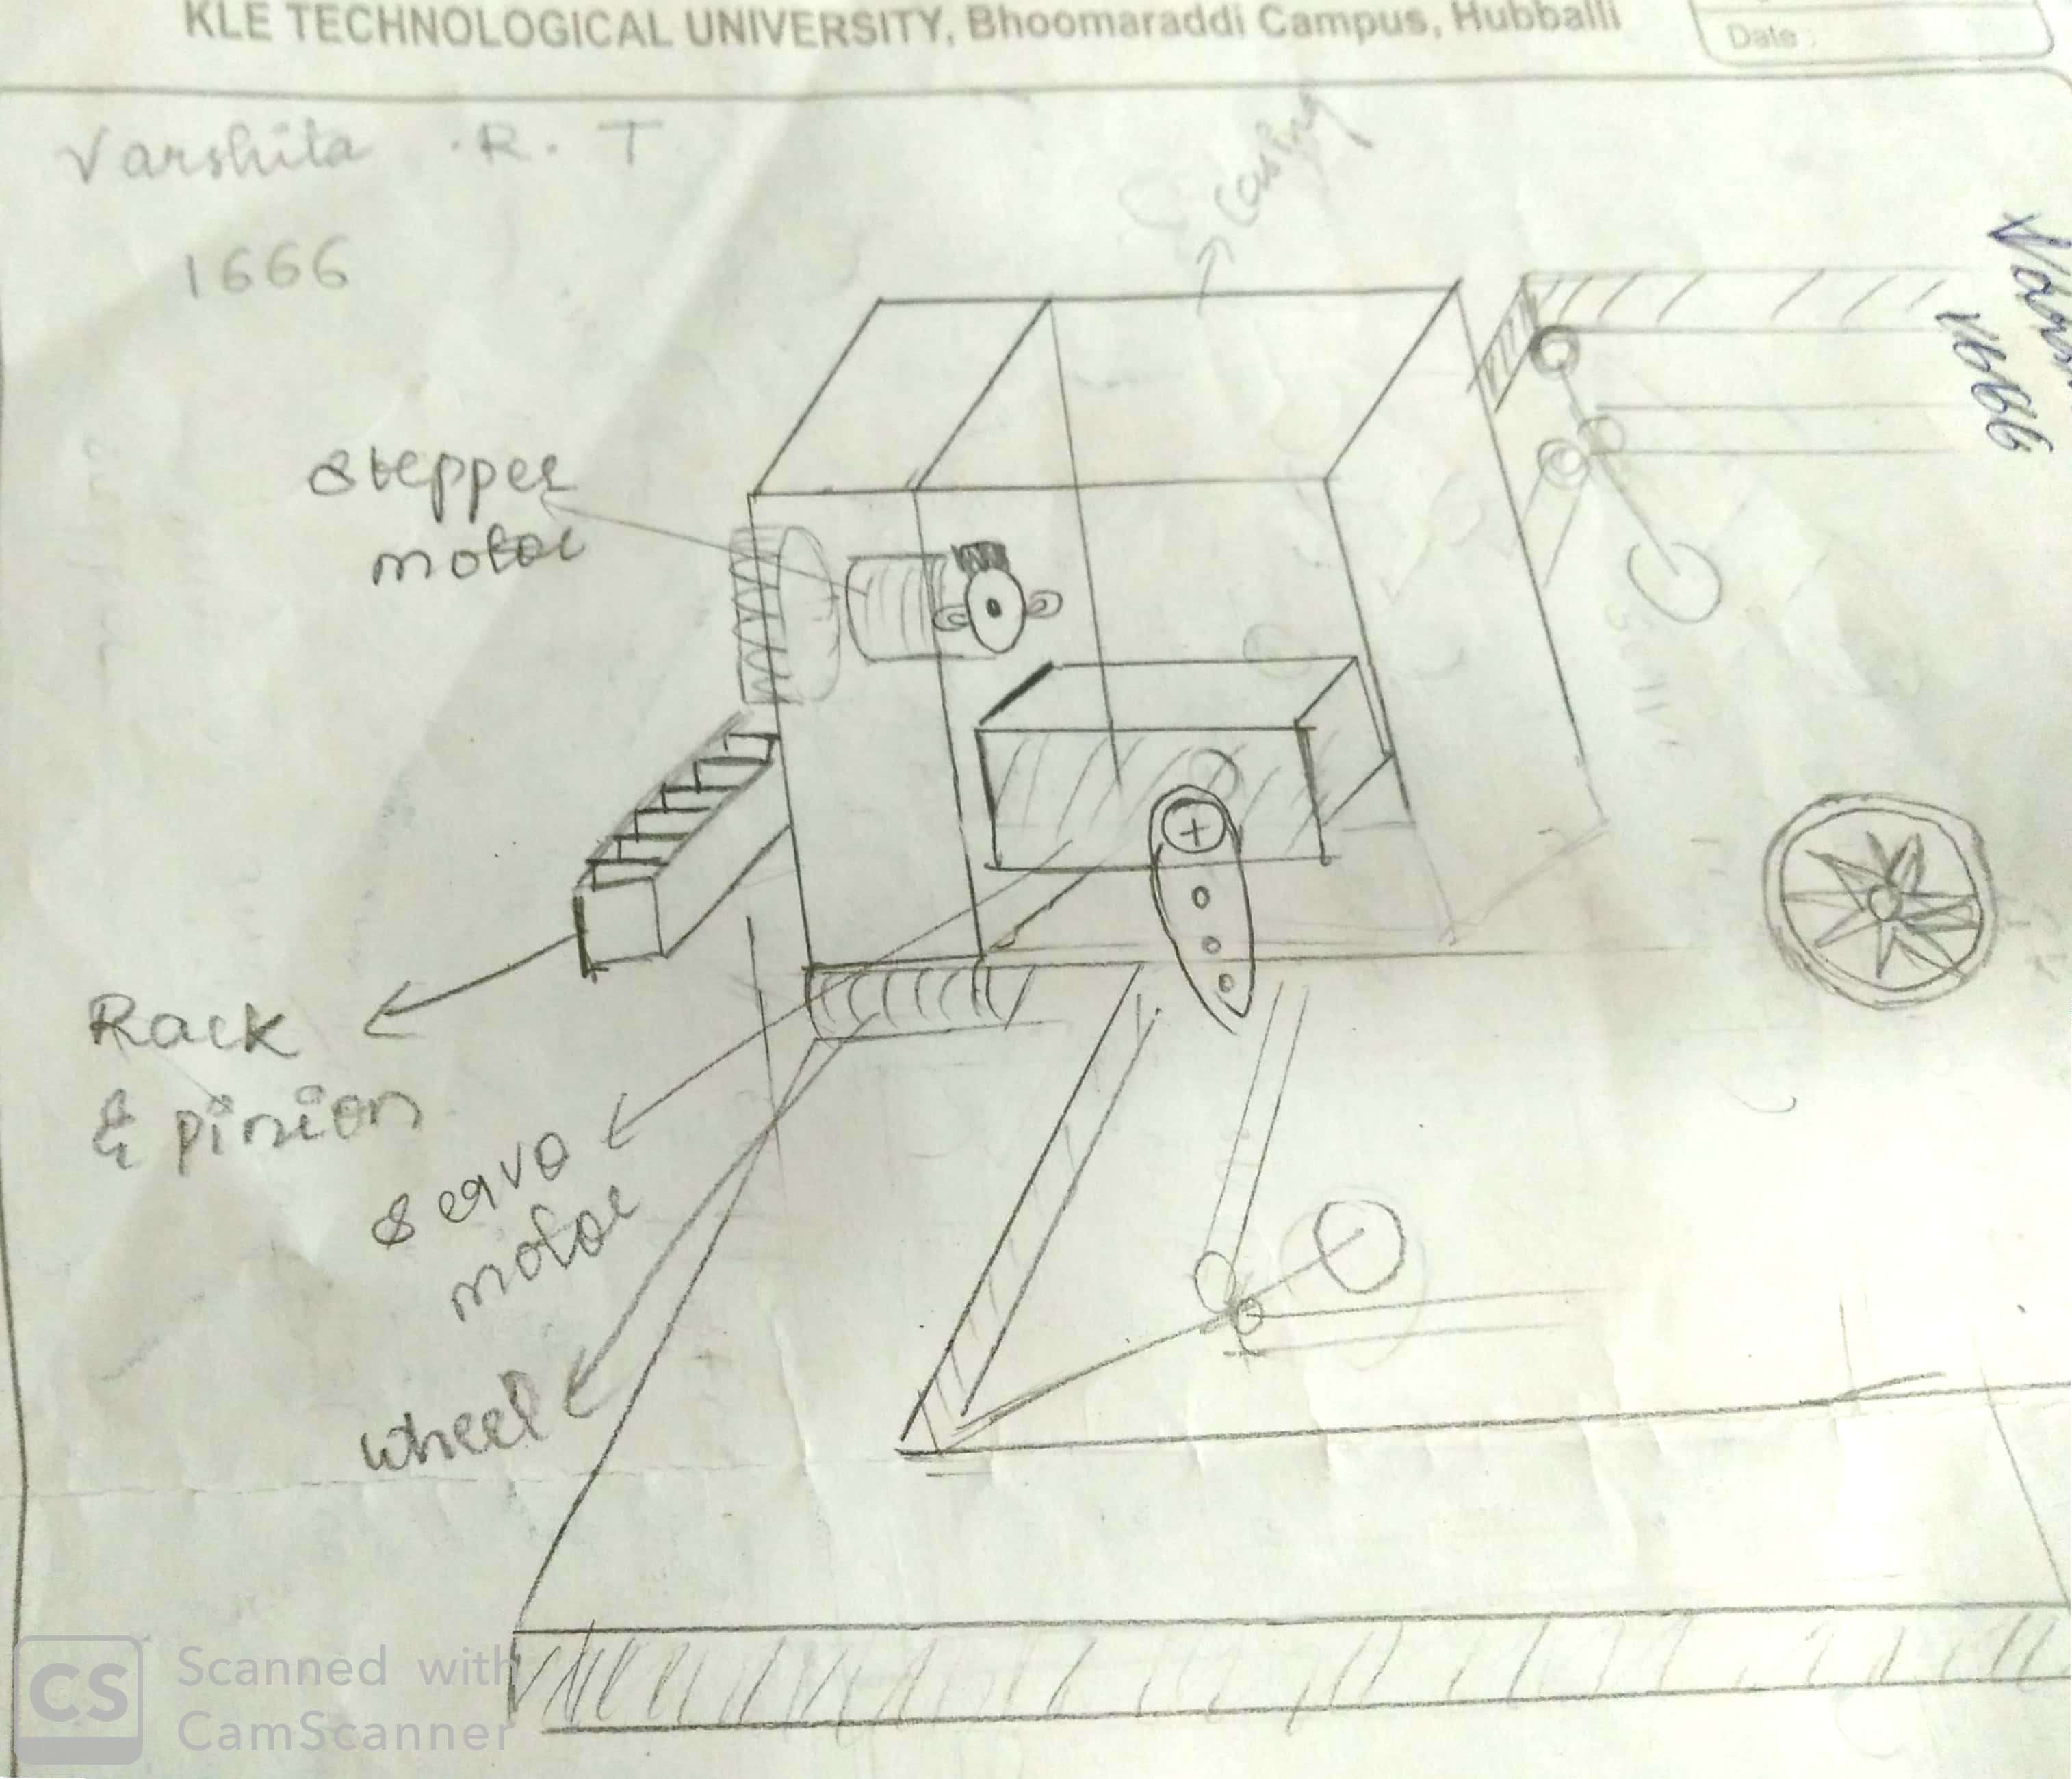 KLE TECHNOLOGICAL UNIVERSITY, Bhoomaraddi Campus, Hubballi
Date :
Varshita . R. T
1666
casing
Stepper
motor
Rack
& pinion
servo
motor
wheel
1666
CS
Scanned with
CamScanner